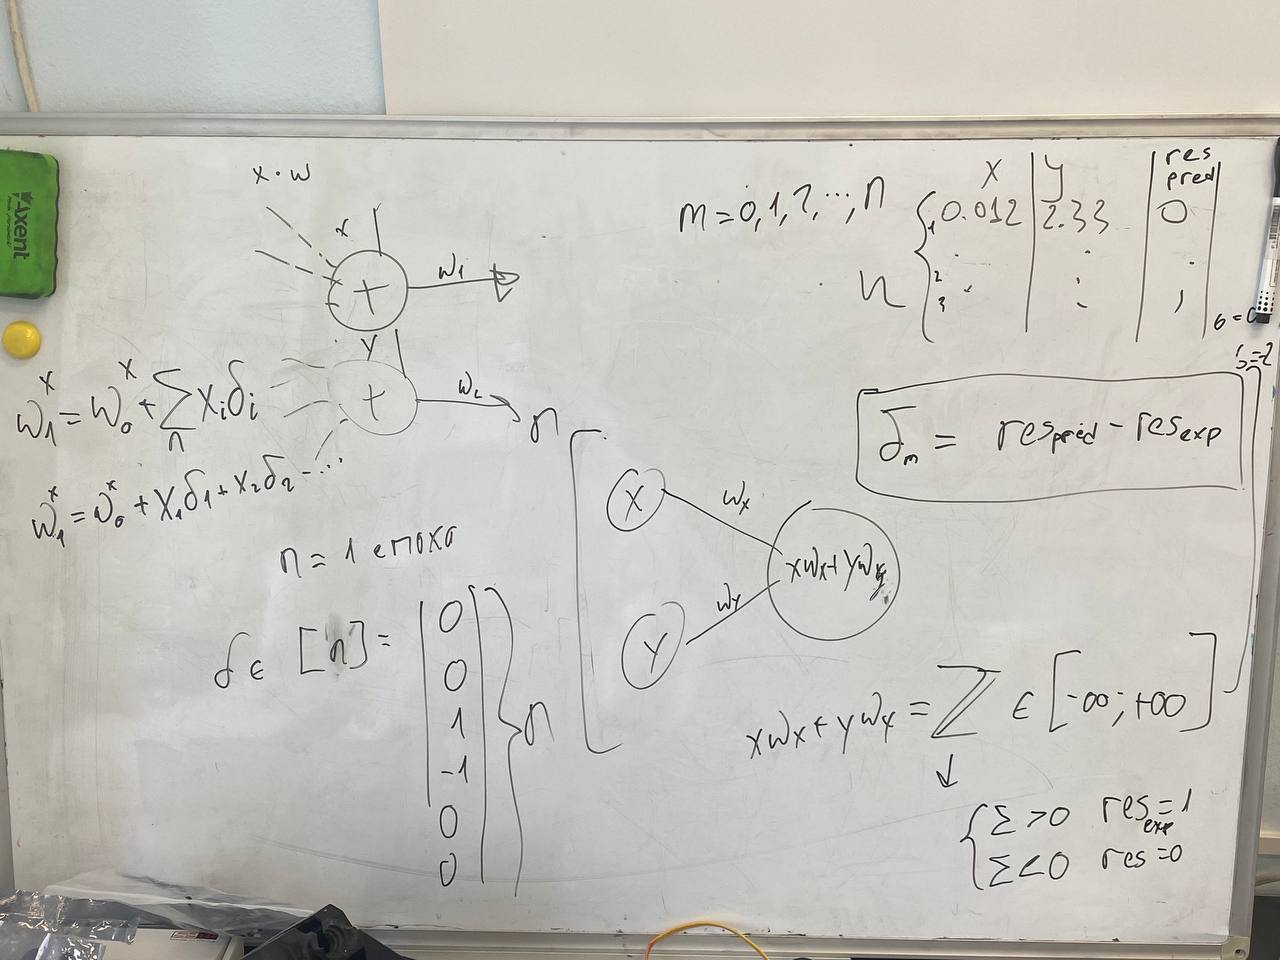 Axent
x · w
x
+
w₁
y
+
w₂
w₁ˣ = w₀ˣ + ∑ₙ xᵢδᵢ
w₁ˣ = w₀ˣ + x₁δ₁ + x₂δ₂ ....
n = 1 епоха
δ ∈ [n] =
0
0
1
-1
0
0
} n
m = 0, 1, 2, ..., n
x | y | res pred
n { 1 0.012 | 2.33 | 0
2
3
δₘ = res pred - res exp
n
X
wₓ
xwₓ + ywᵧ
Y
wᵧ
xwₓ + ywᵧ = ∑ ∈ [-∞; +∞]
↓
{ Σ > 0 res exp = 1
Σ < 0 res = 0